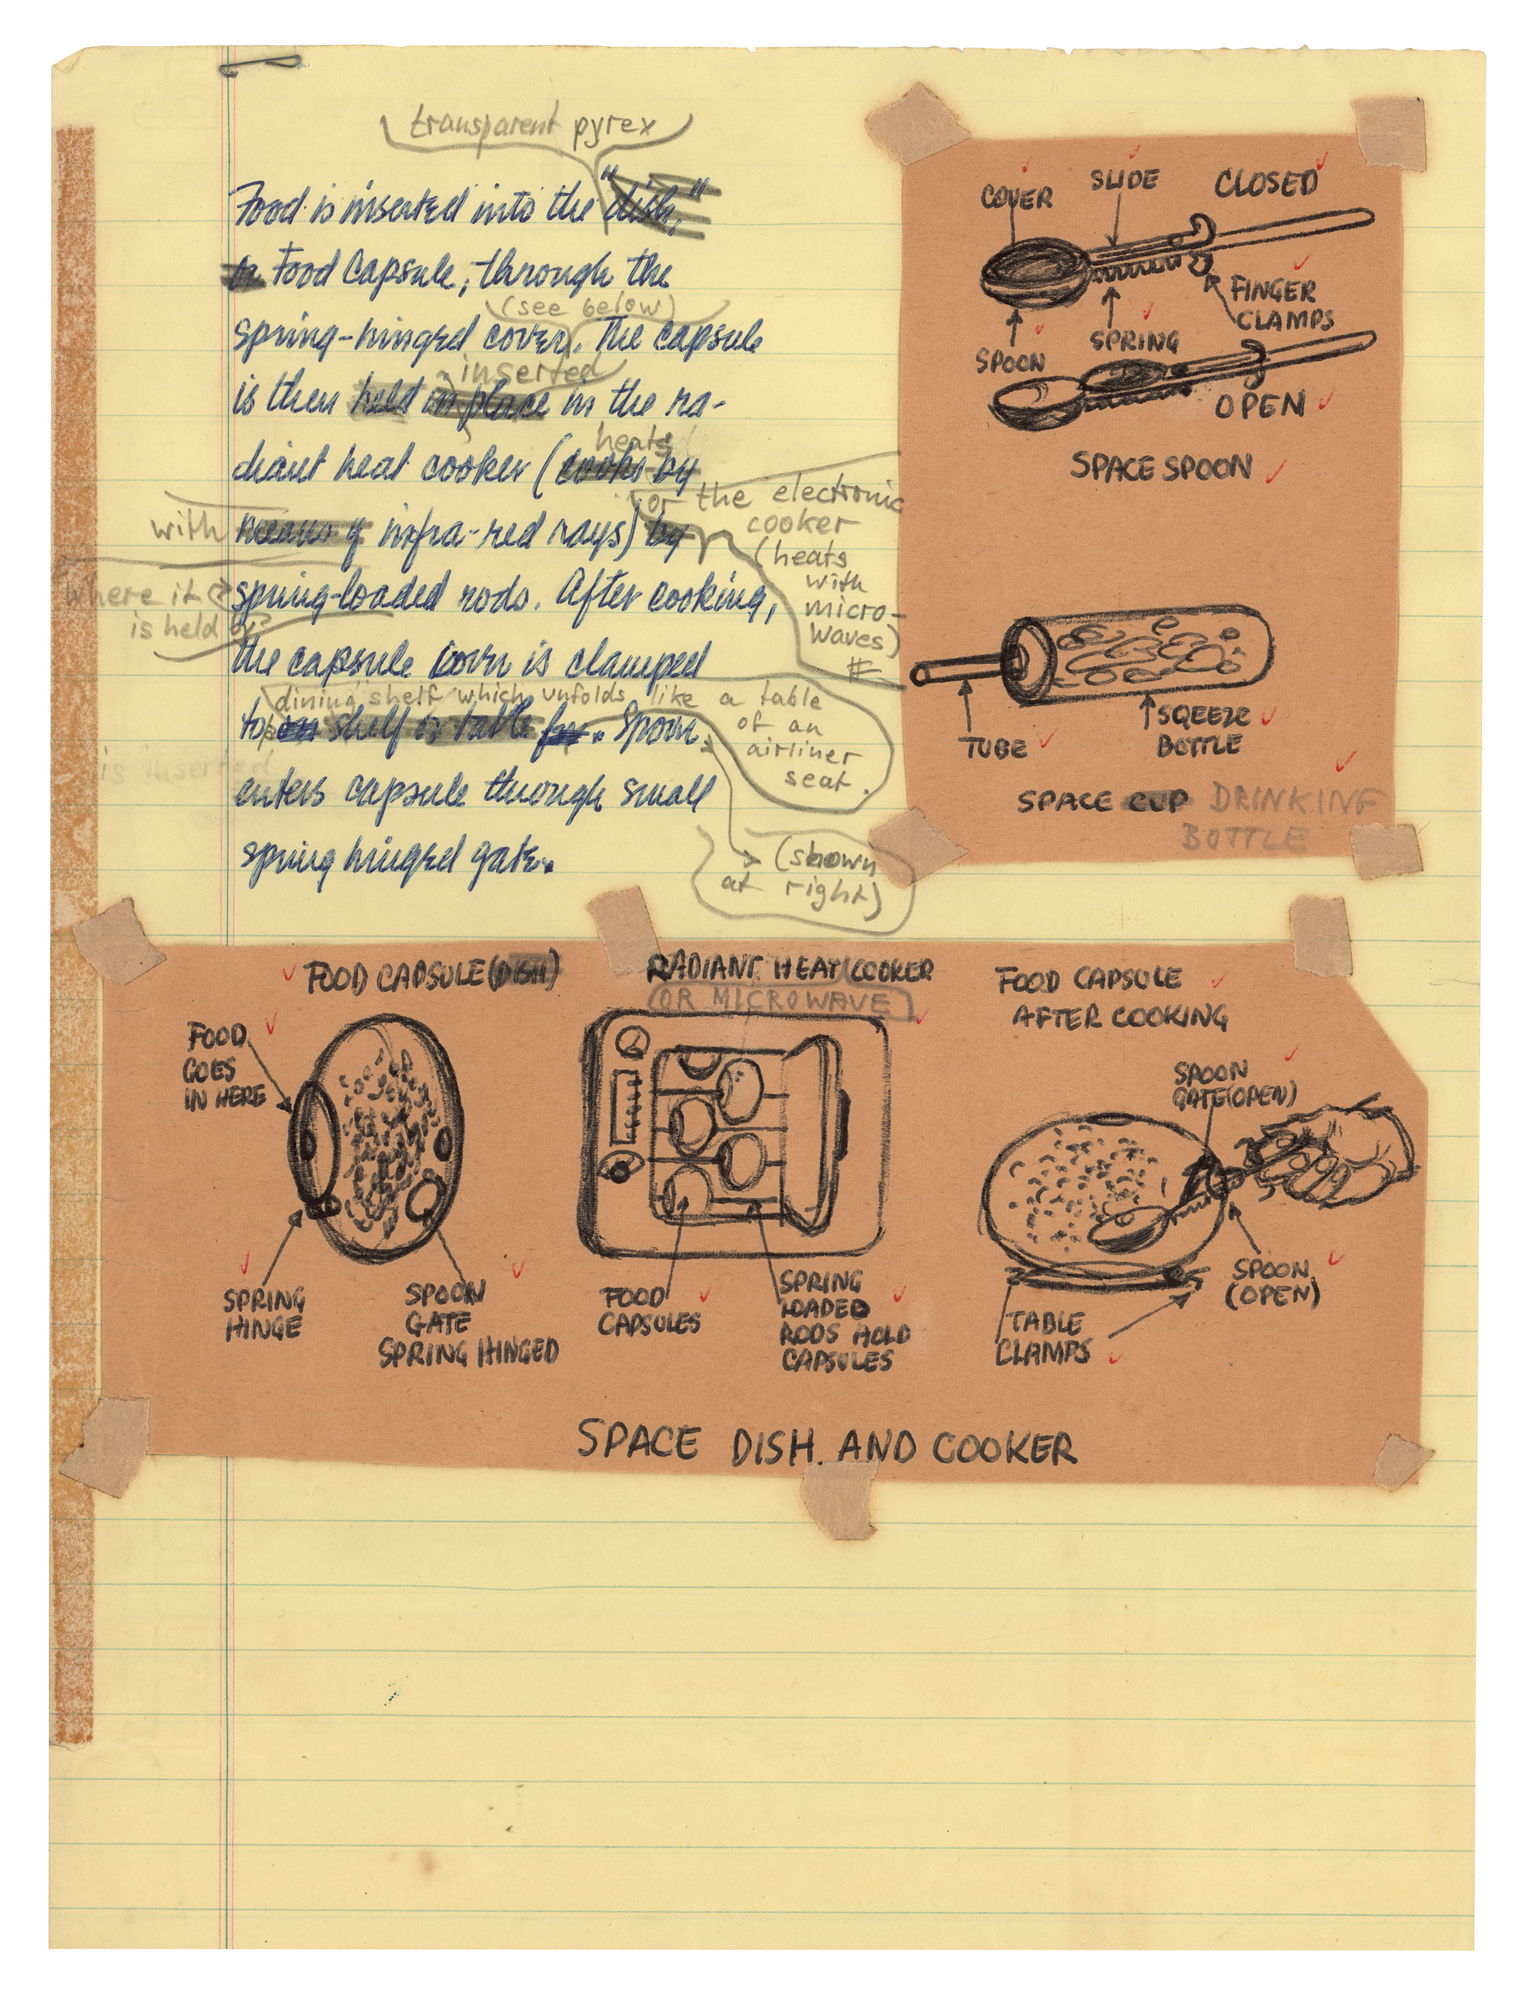 transparent pyrex
Food is inserted into the "dish,"
or Food Capsule, through the
(see below)
spring-hinged cover. The capsule
inserted
is then held in place in the ra-
heats
diant heat cooker (cooks by
or the electronic
cooker
(heats
with
micro-
waves)
with means of infra-red rays) by
where it
is held by?
spring-loaded rods. After cooking,
the capsule is clamped
dining shelf which unfolds like a table
of an
airliner
seat.
to shelf or table for. Spoon
is inserted
enters capsule through small
spring hinged gate.
(shown
at right)
COVER
SLIDE
CLOSED
FINGER
CLAMPS
SPOON
SPRING
OPEN
SPACE SPOON
TUBE
SQEEZE
BOTTLE
SPACE CUP DRINKING
BOTTLE
FOOD CAPSULE (DISH)
FOOD
GOES
IN HERE
SPRING
HINGE
SPOON
GATE
SPRING HINGED
RADIANT HEAT COOKER
OR MICROWAVE
FOOD
CAPSULES
SPRING
LOADED
RODS HOLD
CAPSULES
FOOD CAPSULE
AFTER COOKING
SPOON
GATE (OPEN)
SPOON
(OPEN)
TABLE
CLAMPS
SPACE DISH AND COOKER